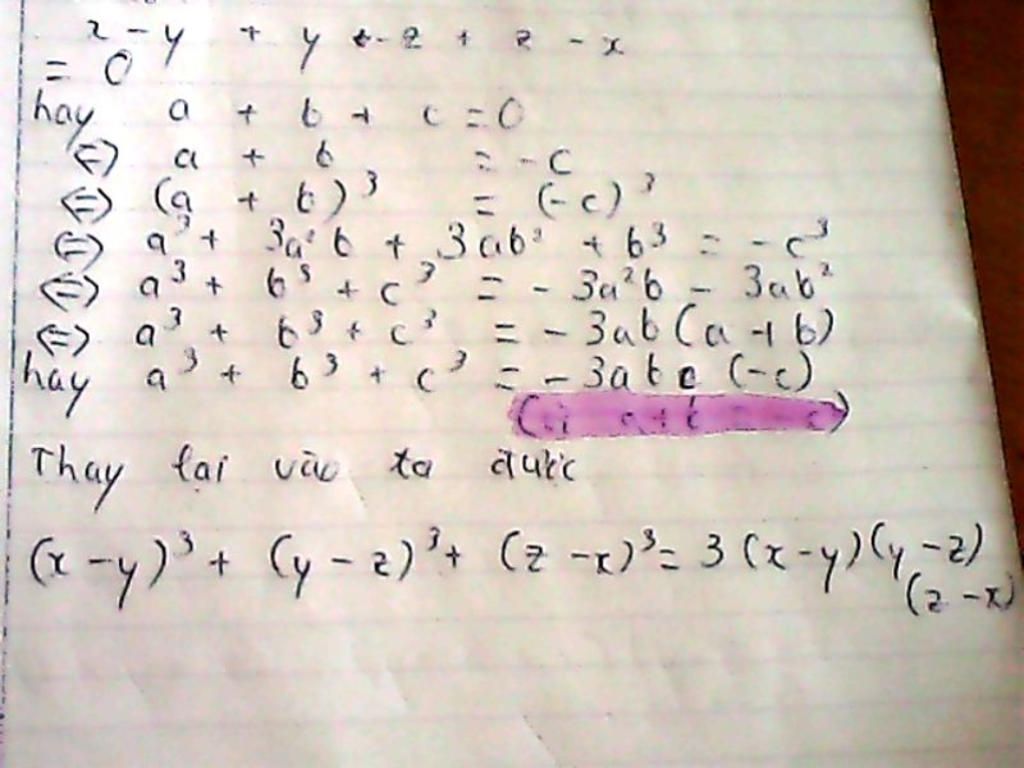 x - y + y - z + z - x
= 0
hay a + b + c = 0
<=> a + b = - c
<=> (a + b)³ = (-c)³
<=> a³ + 3a²b + 3ab² + b³ = - c³
<=> a³ + b³ + c³ = - 3a²b - 3ab²
<=> a³ + b³ + c³ = - 3ab (a + b)
hay a³ + b³ + c³ = - 3ab (-c)
a + b = - c)
Thay lại vào ta được
(x - y)³ + (y - z)³ + (z - x)³ = 3 (x - y)(y - z)
(z - x)